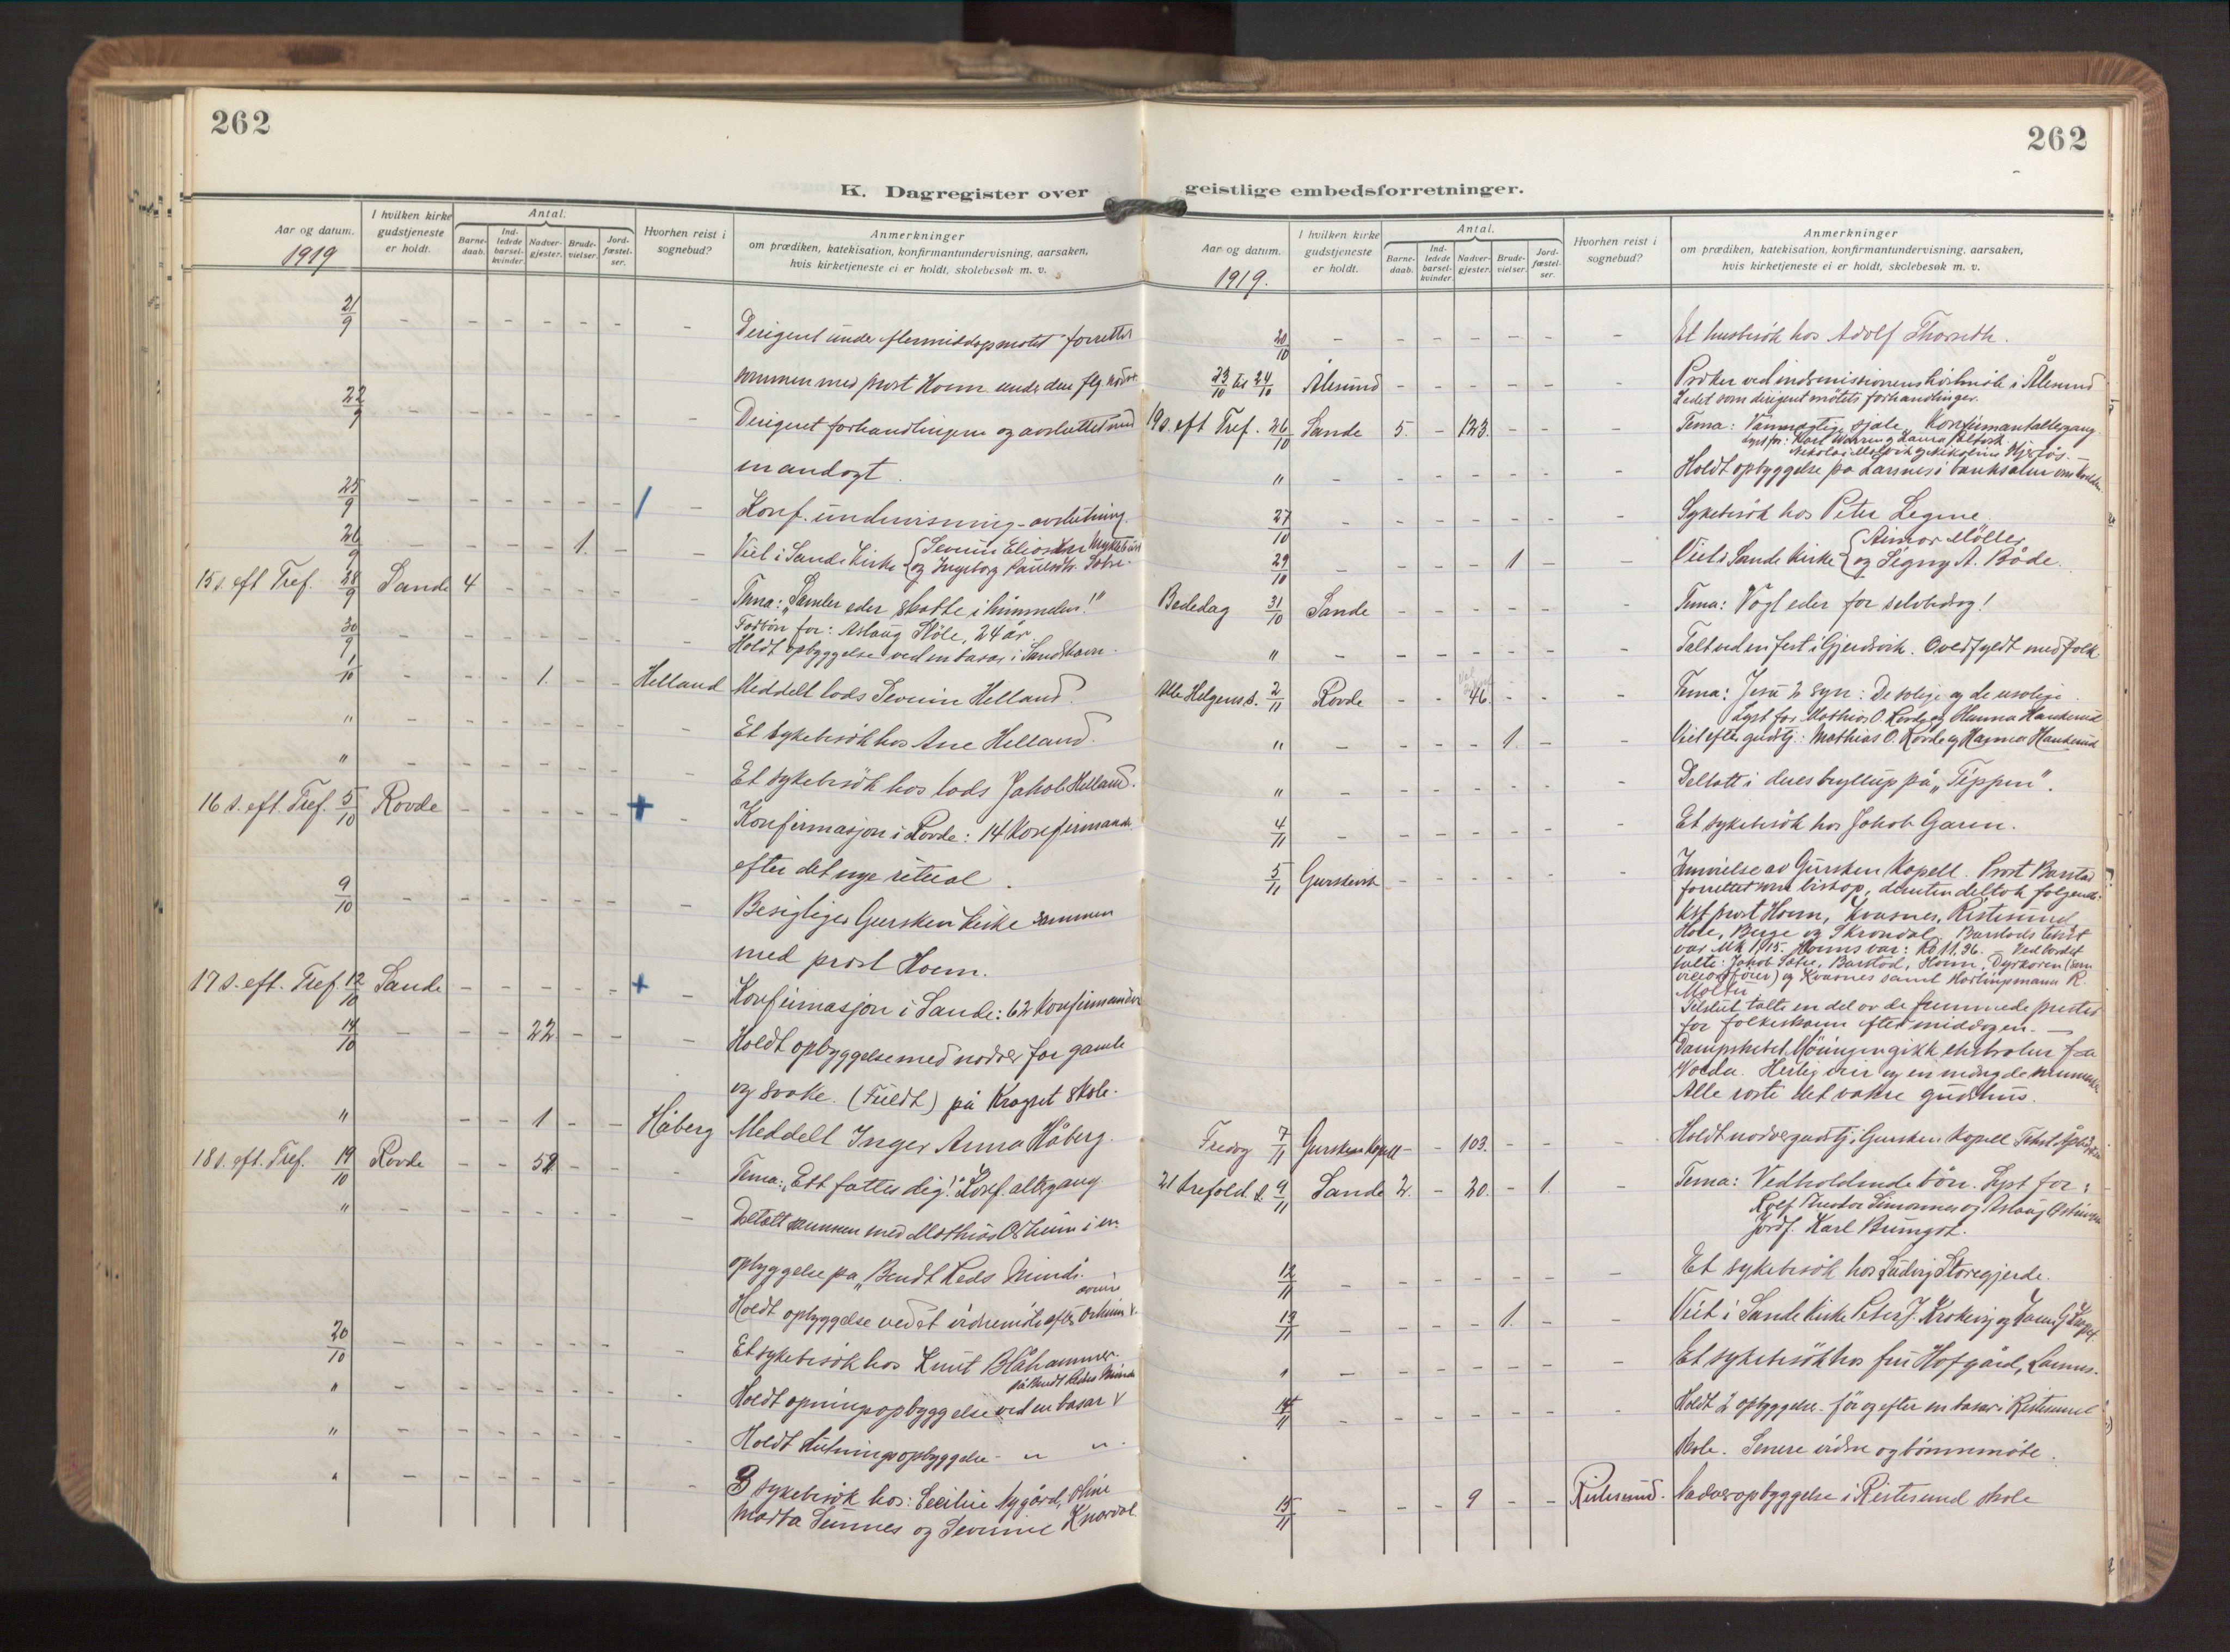 262
K. Dagregister over
Aar og datum.
1919
I hvilken kirke gudstjeneste er holdt.
Antal.
Barne-daab.
Ind-ledede barsel-kvinder.
Nadver-gjester.
Brude-vielser.
Jord-fæstel-ser.
Hvorhen reist i sognebud?
Anmerkninger
om prædiken, katekisation, konfirmantundervisning, aarsaken,
hvis kirketjeneste ei er holdt, skolebesøk m. v.
21/9 - - - - - - - Dirigent under eftermiddagsmötet forrettet
sammen med prost Hoem under den flg. nadver.
22/9 - - - - - - - Dirigeret forhandlingene og avsluttet med
en andagt.
25/9 - - - - - - / - Konf. undervisning - avslutning.
26/9 - - - - 1. - - Viet i Sande kirke {Severin Eliassen Myklebust
og Ingeborg Paulsdtr. Sætre.
15 s. eft Tref. 28/9 Sande 4 - - - - - Tema: "Samler eder skatte i himmelen!"
Forbön for: Aslaug Støle, 24 år.
30/9 - - - - - - - Holdt opbyggelse ved en basar i Sandshavn.
1/10 - - - 1. - - Helland Meddelt lods Severin Helland.
" - - - - - - - Et sykebesök hos Ane Helland.
" - - - - - - - Et sykebesök hos lods Jakob Helland.
16 s. eft. Tref. 5/10 Rovde - - - - - + - Konfirmasjon i Rovde: 14 konfirmander
efter det nye ritual.
9/10 - - - - - - - Besigtiget Gursken kirke sammen
med prost Hoem.
17 s. eft. Tref. 12/10 Sande - - - - - + - Konfirmasjon i Sande: 62 konfirmander
14/10 - - - 22 - - - Holdt opbyggelse med nadver for gamle
og svake. (Fuldt) på Kragset skole.
" - - 1 - - Håberg Meddelt Inger Anna Håberg.
18 s. eft. Tref. 19/10 Rovde - - 52 - - - Tema: "Ett fattes dig!" Konf. altergang
" - - - - - - - Deltatt sammen med Mathias Osheim i en
opbyggelse på "Bendt Leds Minde".
Holdt opbyggelse ved et vidnemöte efter Osheim
20/10 - - - - - - - Et sykebesök hos Knut Blåhammer.
" - - - - - - - Holdt åpningsopbyggelse ved en basar
på Bendt Leds Minde
" - - - - - - - Holdt slutningsopbyggelse - " "
" - - - - - - - 3 sykebesök hos: Cecilie Nygård, Oline
Marta Semnes og Severine Knardal.
262
geistlige embedsforretninger.
Aar og datum.
1919.
I hvilken kirke gudstjeneste er holdt.
Antal.
Barne-daab.
Ind-ledede barsel-kvinder.
Nadver-gjester.
Brude-vielser.
Jord-fæstel-ser.
Hvorhen reist i sognebud?
Anmerkninger
om prædiken, katekisation, konfirmantundervisning, aarsaken,
hvis kirketjeneste ei er holdt, skolebesøk m. v.
20/10 - - - - - - - Et husbesök hos Adolf Thorseth.
23/10 til 24/10 Ålesund - - - - - - Præker ved indremissionens höstmöte i Ålesund
Ledet som dirigent mötets forhandlinger.
19 s. eft Tref. 26/10 Sande 5. - 123. - - - Tema: Vanmægtige sjæle. Konfirmantaltergang.
" - - - - - - - Holdt opbyggelse på Larsnes i banksalen om kvelden.
27/10 - - - - - - - Sykebesök hos Peter Legene.
29/10 - - - - 1 - - Viet i Sande kirke {Aimar Möller
og Signy A. Både.
Bededag 31/10 Sande - - - - - - Tema: Vogt eder for selvbedrag!
" - - - - - - - Talt ved en fest i Gjerdsvik. Overfyldt med folk.
Alle Helgens s. 2/11 Rovde - - 46 - - - Tema: Jesu 2 syn: De salige og de usalige.
Lyst for Mathias O. Rovde og Hanna Haukereid
" - - - - 1. - - Viet efter gudstj.: Mathias O. Rovde og Hanna Haukereid
" - - - - - - - Deltatt i deres bryllup på "Tippen".
4/11 - - - - - - - Et sykebesök hos Jakob Garen.
5/11 Gurskevik - - - - - - Innvielse av Gursken Kapell. Prost Barstad
forrettet som biskop, desuten deltok følgende:
Kst prost Hoem, Kvasnes, Ristesund,
Hole, Berge og Skrondal. Barstads tekst
var Mk 1,15. Hoems var: Rö 11,36. - Ved bordet
talte: Jakob Sætre, Barstad, Hoem, Dyrkoren (som
viceordförer) og Kvasnes samt stortingsmann R.
Moltu.
Tilslut talte en del av de fremmede prester
for folkeskaren eftermiddagen. -
Dampskibet Möringen gikk ekstratur fra
Volda. Herlig veir og en mengde mennesker
Alle roste det vakre gudshus.
Fredag 7/11 Gursken Kapell - - 103. - - - Holdt nadvergudstj. i Gursken Kapell
21 trefold. s. 9/11 Sande 2. - 20. - 1. - Tema: Vedholdende bön. Lyst for:
Jordf. Karl Bringst.
12/11 - - - - - - - Et sykebesök hos Ludvig Storegjerde.
13/11 - - - - 1. - - Viet i Sande kirke Peter J. Krokvig og
" - - - - - - - Et sykebesök hos fru Hofgård, Larsnes.
14/11 - - - - - - - Holdt 2 opbyggelse för og efter en basar i Ristesund
skole. Senere vidne og bönnemöte.
15/11 - - - 9 - - Ristesund. Nadveropbyggelse i Ristesund skole